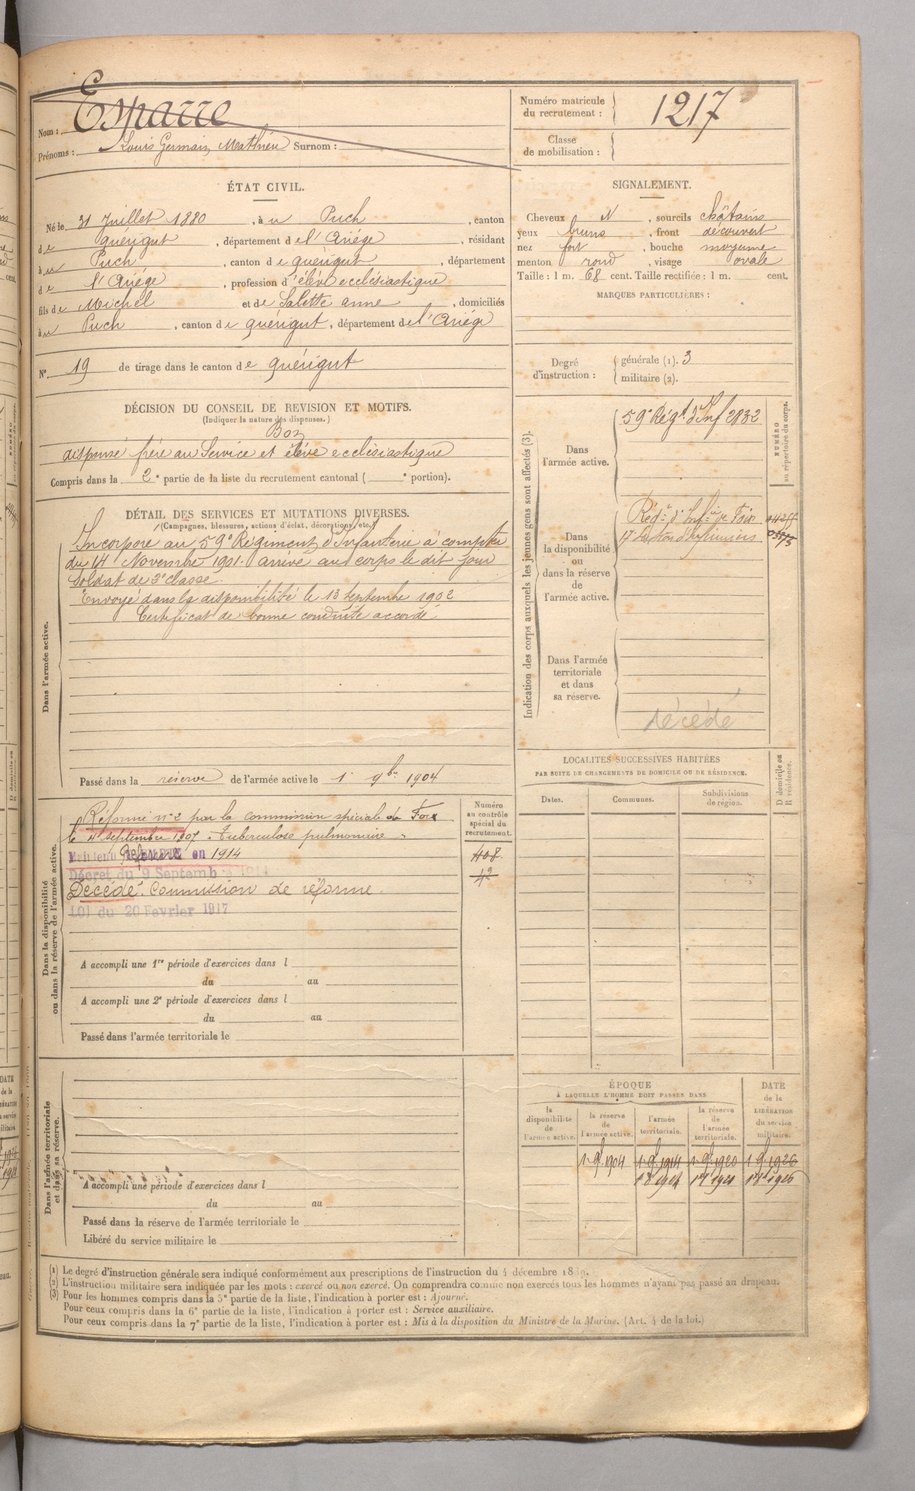 Nom : Esparre
Prénoms : Louis Germain Mathieu Surnom :
Numéro matricule du recrutement : 1217
Classe de mobilisation :
ÉTAT CIVIL.
Né le 31 Juillet 1880, à u Puch, canton
de quérigut, département de l'Ariége, résidant
à u Puch, canton de quérigut, département
de l'Ariége, profession d'élève ecclésiastique
fils de Michel et de Salette anne, domiciliés
à u Puch, canton de quérigut, département de l'Ariége
N° 19 de tirage dans le canton de quérigut
SIGNALEMENT.
Cheveux N, sourcils châtains
yeux bruns, front découvert
nez fort, bouche moyenne
menton rond, visage ovale
Taille : 1 m. 68 cent. Taille rectifiée : 1 m. cent.
MARQUES PARTICULIÈRES :
Degré d'instruction : générale (1). 3
militaire (2).
DÉCISION DU CONSEIL DE REVISION ET MOTIFS.
(Indiquer la nature des dispenses.)
Bon
dispensé frère au Service et élève ecclésiastique
Compris dans la 2e partie de la liste du recrutement cantonal ( e portion).
DÉTAIL DES SERVICES ET MUTATIONS DIVERSES.
(Campagnes, blessures, actions d'éclat, décorations, etc.)
Dans l'armée active.
Incorporé au 59e Régiment d'Infanterie à compter
du 14 Novembre 1901. arrivé au corps le dit jour
Soldat de 2e classe
Envoyé dans la disponibilité le 13 Septembre 1902
Certificat de bonne conduite accordé
Passé dans la réserve de l'armée active le 1er 9bre 1904
Indication des corps auxquels les jeunes gens sont affectés (3).
NUMÉRO au répertoire du corps.
Dans l'armée active.
59e Régt d'Inf 2832
Dans la disponibilité ou dans la réserve de l'armée active.
Régt d'Infie de Foix
17 Son d'Infirmiers
Dans l'armée territoriale et dans sa réserve.
décédé
LOCALITÉS SUCCESSIVES HABITÉES
PAR SUITE DE CHANGEMENTS DE DOMICILE OU DE RÉSIDENCE.
Dates. Communes. Subdivisions de région. D domicile ou R résidence.
Dans la disponibilité ou dans la réserve de l'armée active.
Numéro au contrôle spécial du recrutement.
408
42
Réformé n° 2 par la commission spéciale de Foix
le 4 septembre 1907. Tuberculose pulmonaire.
Maintenu Réformé en 1914
Décret du 9 Septembre 1914
Décédé. Commission de réforme.
Loi du 20 Février 1917
A accompli une 1re période d'exercices dans l
du au
A accompli une 2e période d'exercices dans l
du au
Passé dans l'armée territoriale le
Dans l'armée territoriale et dans sa réserve.
A accompli une période d'exercices dans l
du au
Passé dans la réserve de l'armée territoriale le
Libéré du service militaire le
ÉPOQUE
À LAQUELLE L'HOMME DOIT PASSER DANS
la disponibilité de l'armée active. la réserve de l'armée active. l'armée territoriale. la réserve de l'armée territoriale. DATE de la LIBÉRATION du service militaire.
1.9.1904 1.9.1914 1.9.1920 1.9.1926
(1) Le degré d'instruction générale sera indiqué conformément aux prescriptions de l'instruction du 4 décembre 1889.
(2) L'instruction militaire sera indiquée par les mots : exercé ou non exercé. On comprendra comme non exercés tous les hommes n'ayant pas passé au drapeau.
(3) Pour les hommes compris dans la 5e partie de la liste, l'indication à porter est : Ajourné.
Pour ceux compris dans la 6e partie de la liste, l'indication à porter est : Service auxiliaire.
Pour ceux compris dans la 7e partie de la liste, l'indication à porter est : Mis à la disposition du Ministre de la Marine. (Art. 4 de la loi.)